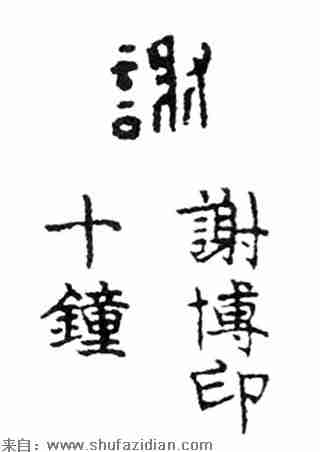 謝
謝博印
十鐘
来自:www.shufazidian.com